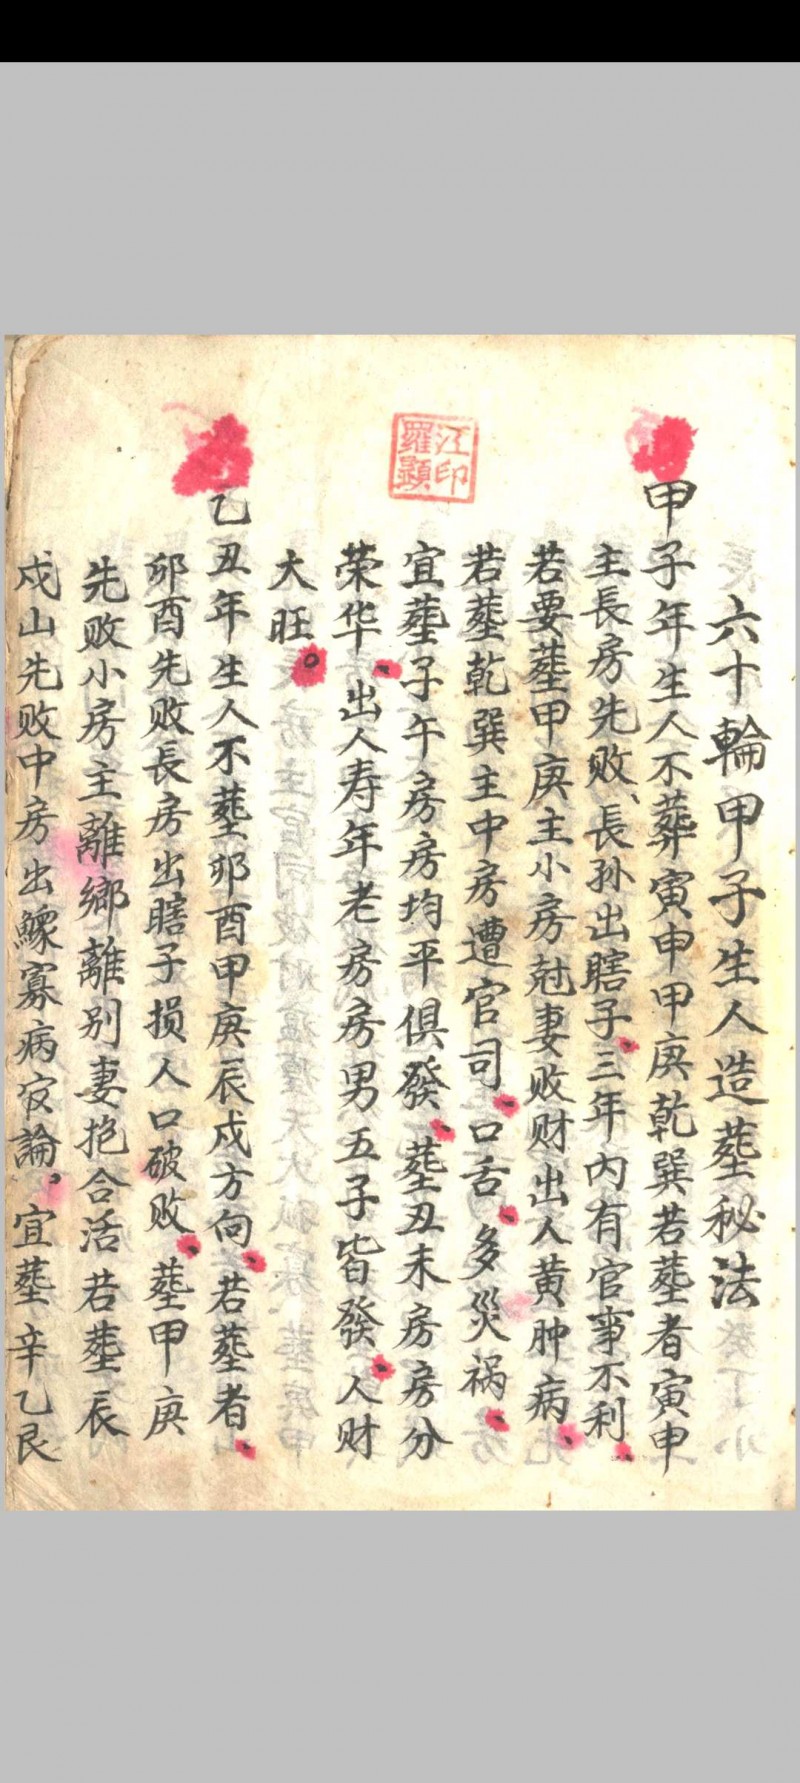 六十輪甲子生人造塟秘法
甲子年生人不葬寅申甲庚乾巽若塟者寅申
主長房先败、長孙出瞎子、三年内有官事不利、
若要塟甲庚主小房尅妻败财出人黄肿病、
若塟乾巽主中房遭官司、口舌、多災禍、
宜塟子午房房均平俱發、塟丑未房房分
荣华、出人寿年老房房男五子皆發、人财
大旺。
乙丑年生人不塟卯酉甲庚辰戍方向、若塟者、
卯酉先败長房出瞎子损人口破败、塟甲庚
先败小房主離鄉離别妻抱合活若塟辰
戍山先败中房出鰥寡病論、宜塟辛乙艮
江印
羅顯